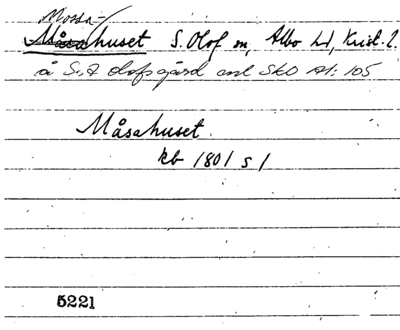 Mossa-/
Måsahuset S. Olof sn, Albo hd, Krist. l.
å S:t Olofsgård enl SkO A1: 105
Måsahuset
kb 1801 s 1
5221